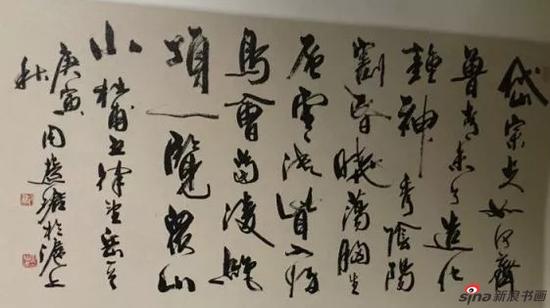 岱宗夫如何齊
魯青未了造化
鍾神秀陰陽
割昏曉蕩胸生
層雲決眥入歸
鳥會當凌絕
頂一覽眾山
小 杜甫五律望岳
庚寅
秋
周慧珺於滬上
sina 新浪书画